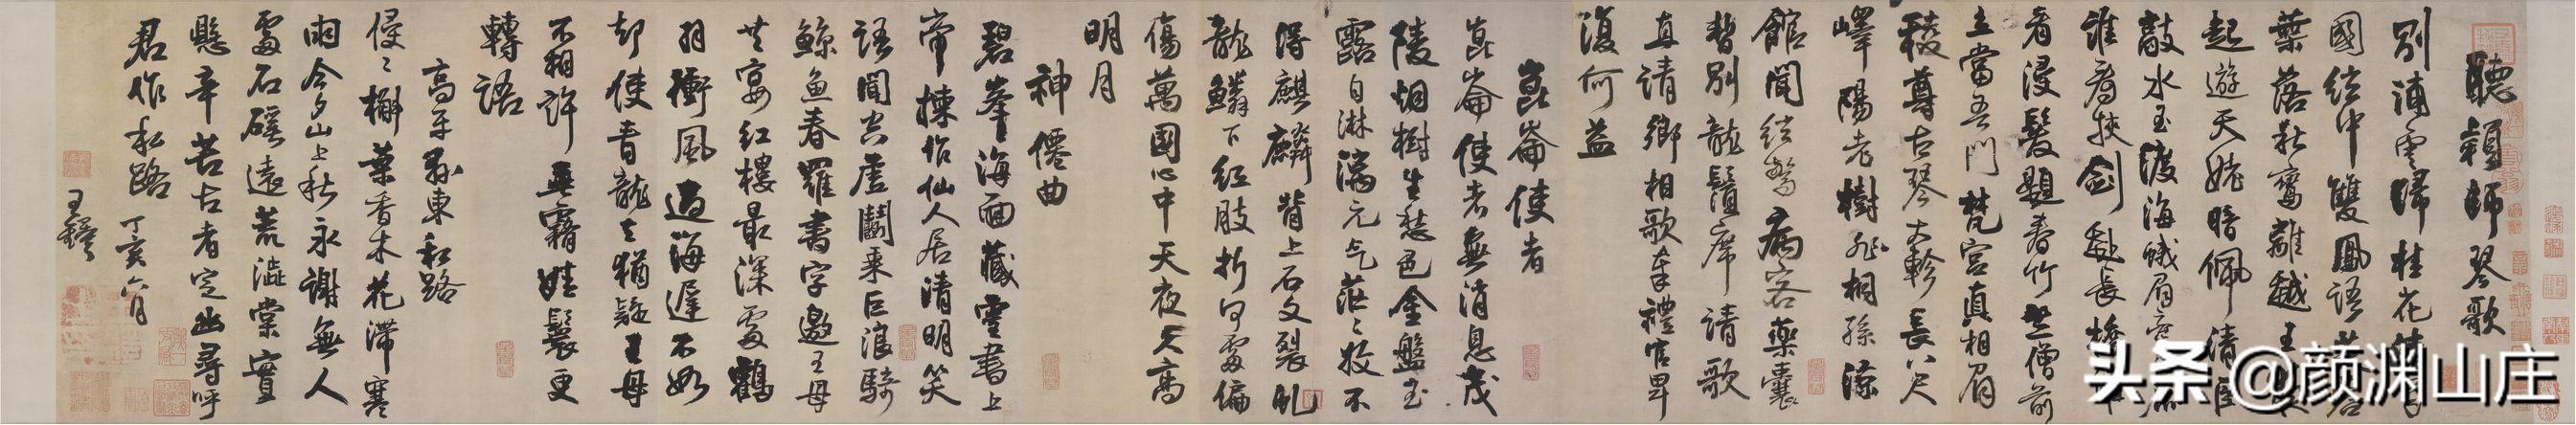 聽穎師琴歌
別浦雲歸桂花
國絃中雙鳳語
葉落秋鸞離越王
起遊天姥暗佩清臣
敲水玉渡海蛾眉
誰看挾劍赴長橋
看浸髮題春竹竺僧前
立當吾門梵宮真相眉
稜尊古琴大軫長八尺
嶧陽老樹非桐孫涼
館聞絃驚病客藥囊
暫別龍鬚席請歌
直請卿相歌奉禮官卑
復何益
崑崙使者
崑崙使者無消息茂
陵烟樹生愁色金盤玉
露自淋漓元气茫〻收不
得麒麟背上石文裂虬
龍鱗下紅肢折何處偏
傷萬國心中天夜久高
明月
神僊曲
碧峯海面藏靈書上
帝揀作仙人居清明笑
語聞空虛鬬乘巨浪騎
鯨魚春羅書字邀王母
共宴紅樓最深處鶴
羽衝風過海遲不如
却使青龍去猶疑王母
不相許垂霧娃鬟更
轉語
高平縣東私路
侵〻槲葉香木花滯寒
雨今夕山上秋永謝無人
處石磎遠荒澁棠實
懸辛苦古者定幽尋呼
君作私路 丁亥六月
王鐸
头条 @颜渊山庄